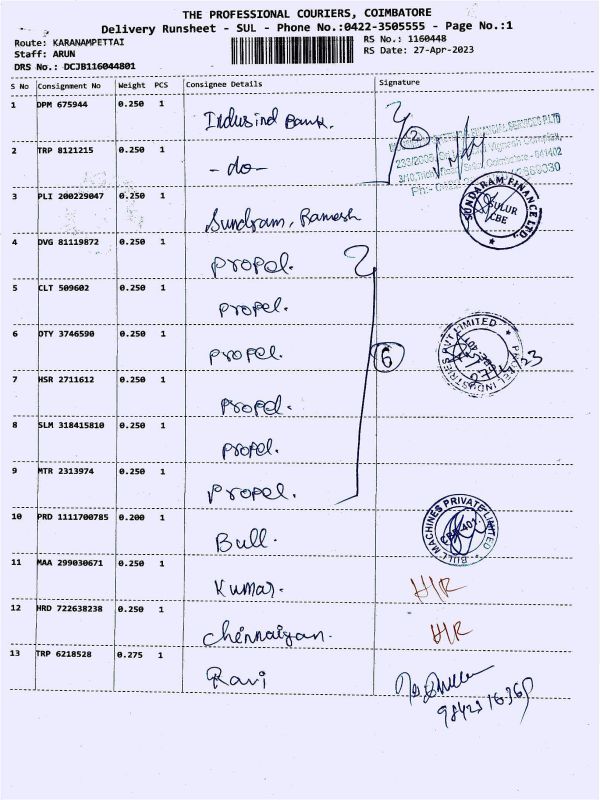 THE PROFESSIONAL COURIERS, COIMBATORE
Delivery Runsheet - SUL - Phone No.:0422-3505555 - Page No.:1
Route: KARANAMPETTAI RS No.: 1160448
Staff: ARUN RS Date: 27-Apr-2023
DRS No.: DCJB116044801
S No Consignment No Weight PCS Consignee Details Signature
1 DPM 675944 0.250 1 Indusind Bank.
2 TRP 8121215 0.250 1 -do- 2
3 PLI 200229047 0.250 1 Sundram, Ramesh SUNDARAM FINANCE LTD. SULUR CBE
4 DVG 81119872 0.250 1 Propel.
5 CLT 509602 0.250 1 Propel.
6 DTY 3746590 0.250 1 Propel. 6
7 HSR 2711612 0.250 1 Propel.
8 SLM 318415810 0.250 1 Propel.
9 MTR 2313974 0.250 1 Propel.
10 PRD 1111700785 0.200 1 Bull. BULL MACHINES PRIVATE LIMITED
11 MAA 299030671 0.250 1 Kumar. H/R
12 HRD 722638238 0.250 1 Chennaiyan. H/R
13 TRP 6218528 0.275 1 Ravi